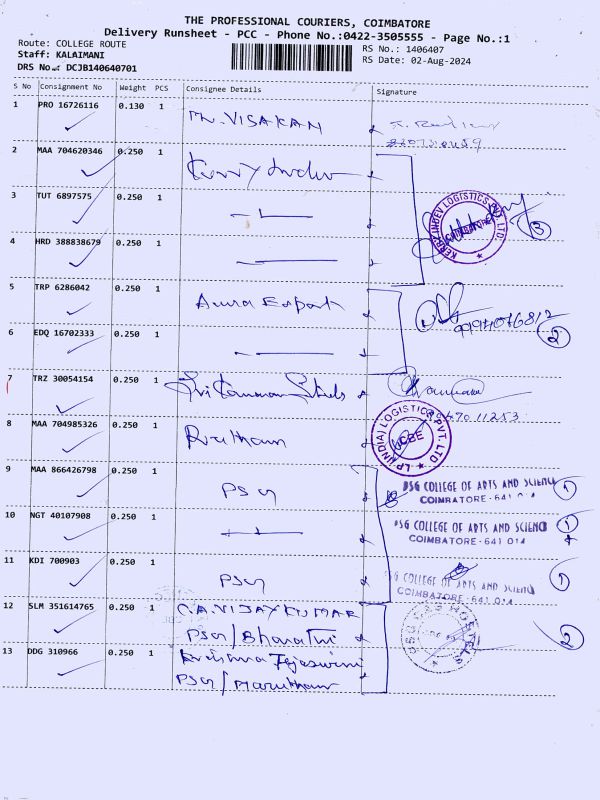 THE PROFESSIONAL COURIERS, COIMBATORE
Delivery Runsheet - PCC - Phone No.:0422-3505555 - Page No.:1
Route: COLLEGE ROUTE
RS No.: 1406407
Staff: KALAIMANI
RS Date: 02-Aug-2024
DRS No.: DCJB140640701
S No Consignment No Weight PCS Consignee Details Signature
1 PRO 16726116 0.130 1 VISAKAN
2 MAA 704620346 0.250 1 Kerry Indev
3 TUT 6897575 0.250 1
KERRY INDEV LOGISTICS PVT. LTD. COIMBATORE
3
4 HRD 388838679 0.250 1
5 TRP 6286042 0.250 1 Export
2
6 EDQ 16702333 0.250 1
7 TRZ 30054154 0.250 1 Sri
8 MAA 704985326 0.250 1
LP (INDIA) LOGISTICS PVT. LTD CBE
9 MAA 866426798 0.250 1 PSG
PSG COLLEGE OF ARTS AND SCIENCE 1
COIMBATORE - 641 014
10 NGT 40107908 0.250 1
PSG COLLEGE OF ARTS AND SCIENCE 1
COIMBATORE - 641 014
11 KDI 700903 0.250 1 PSG
PSG COLLEGE OF ARTS AND SCIENCE 1
COIMBATORE - 641 014
12 SLM 351614765 0.250 1 C.A. VIJAYKUMAR
PSG/Bharathi
2
13 DDG 310966 0.250 1 Krishna Tejaswini
PSG/Marutham